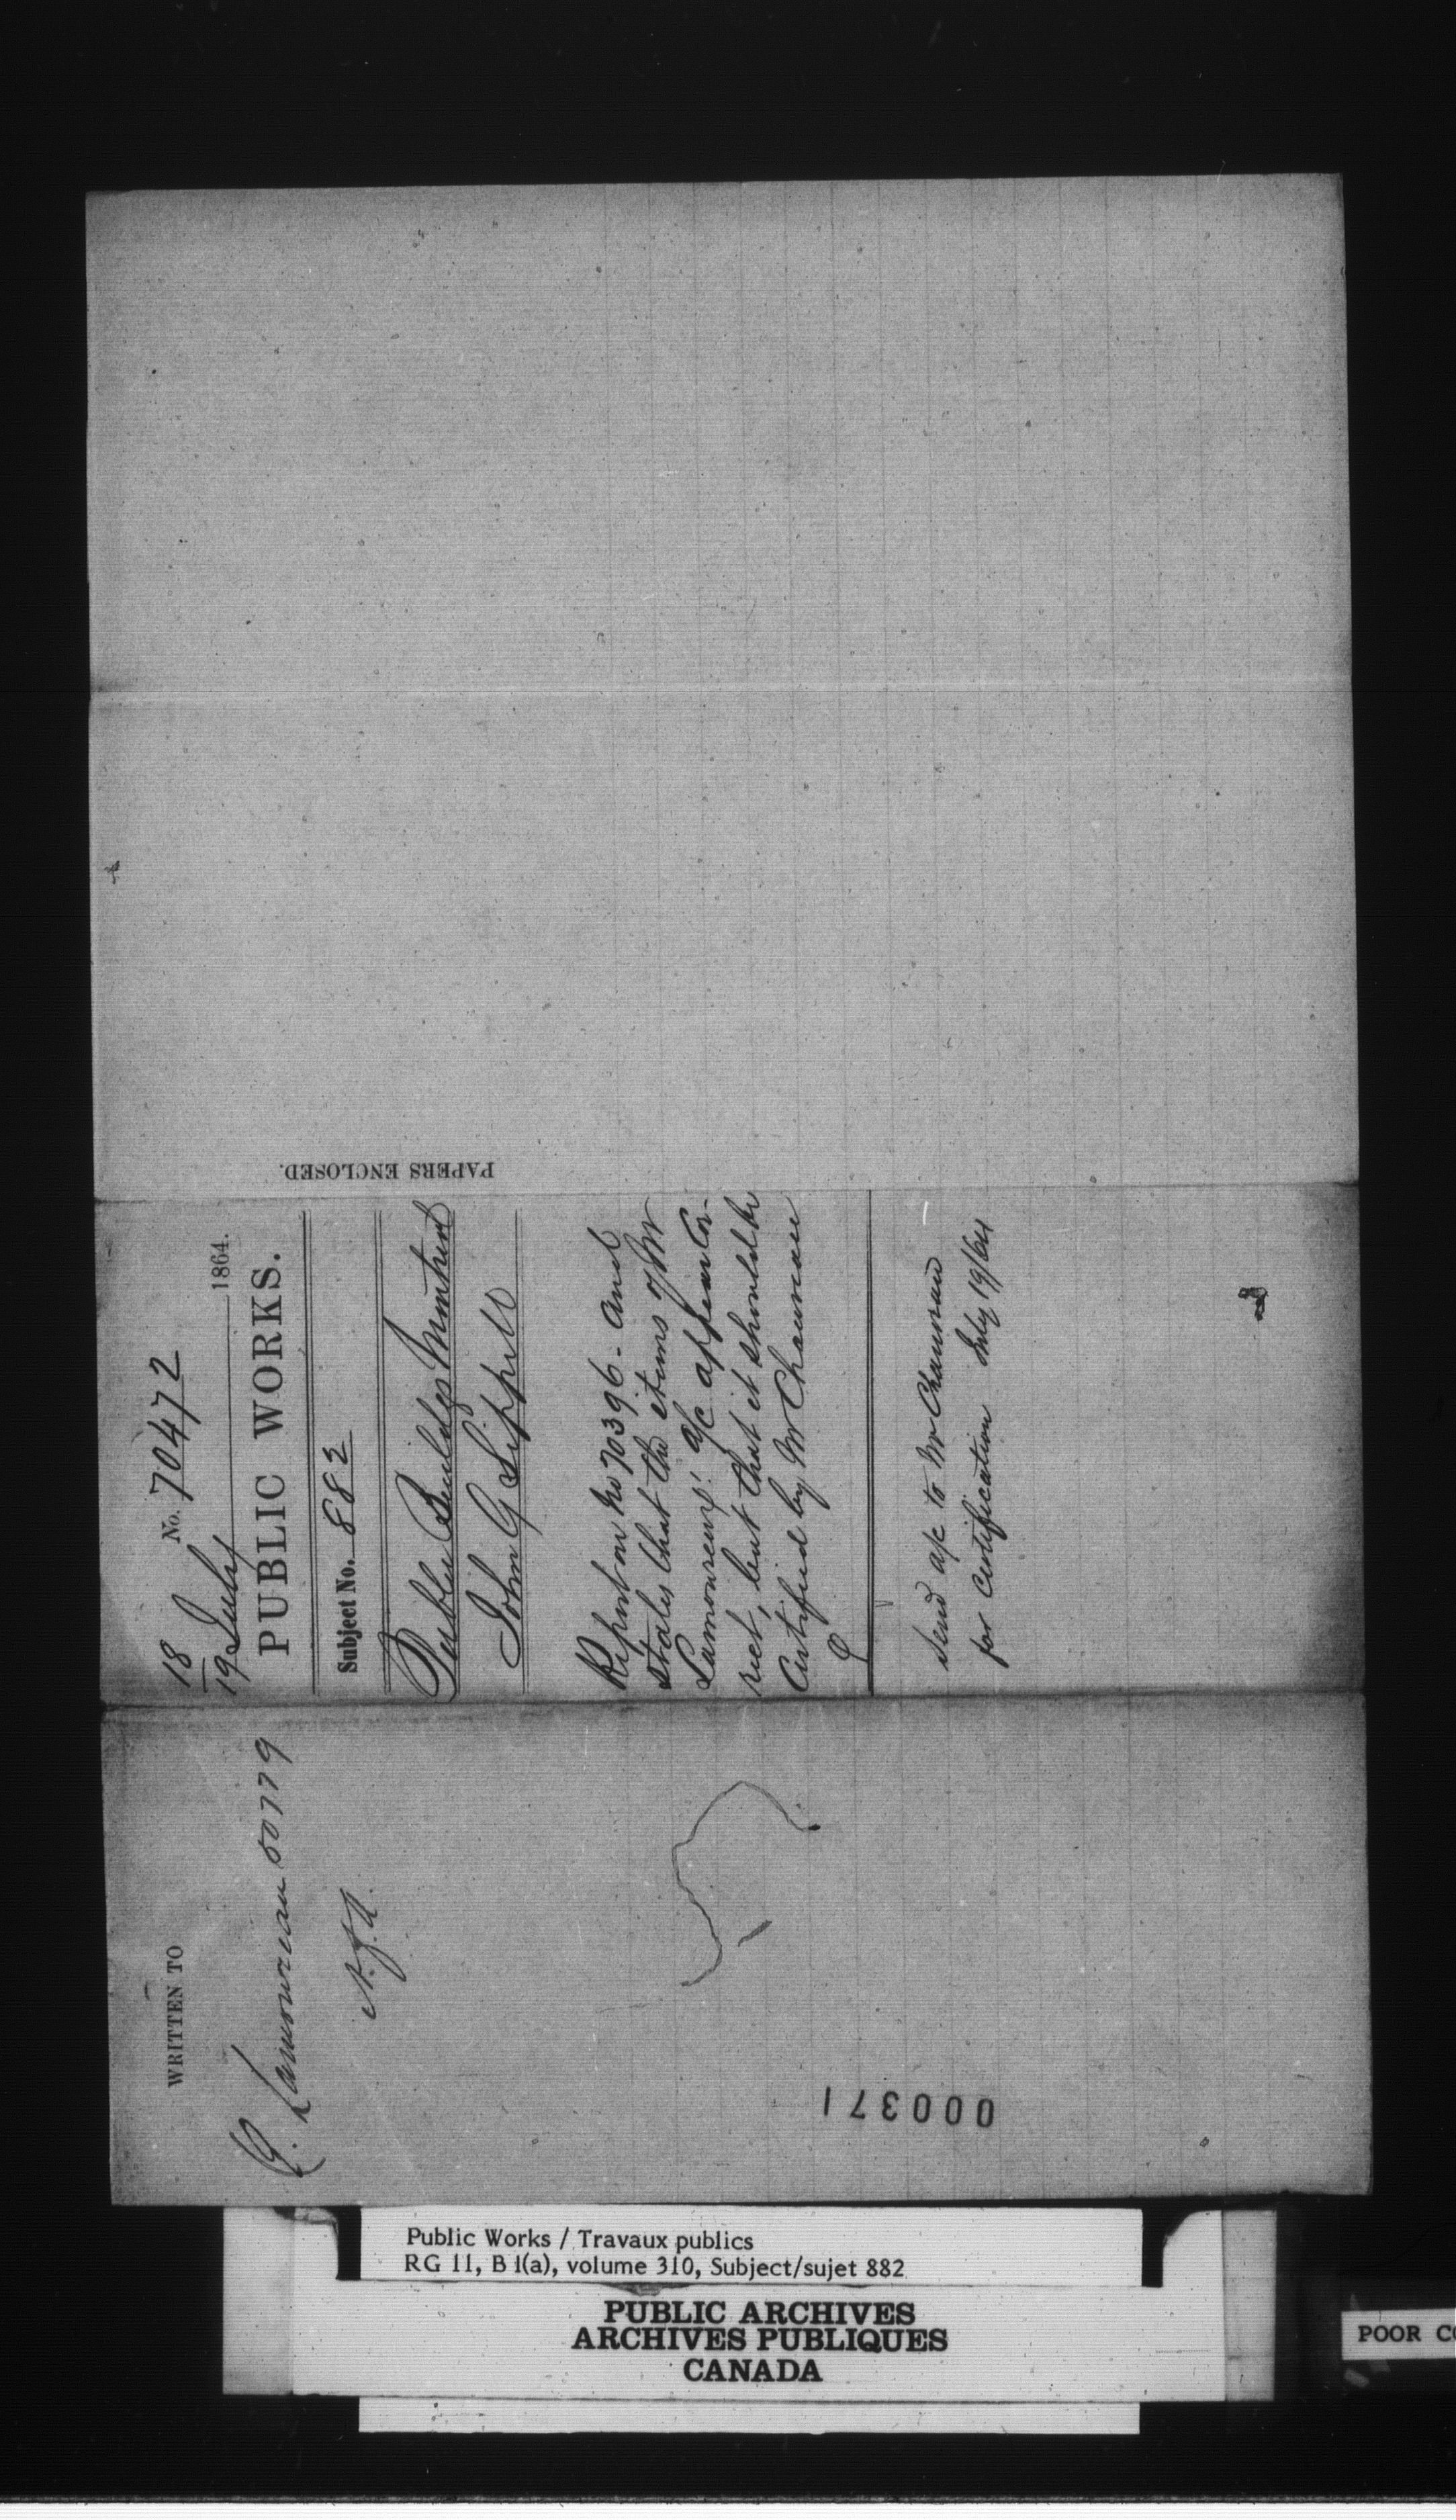 No. 70472
18
19 July 1864.
PUBLIC WORKS.
Subject No. 882
Public Buildgs Montreal
John G Sippell
Report on No 70396 - and
states that the items of Mr
Lamoureux' a/c appear Cor-
rect, but that it should be
Certified by Mr Chauveau
Send a/c to Mr Chauveau
for Certification July 19/64
PAPERS ENCLOSED.
WRITTEN TO
Lamoureau 50779
000371
Public Works / Travaux publics
RG 11, B 1(a), volume 310, Subject/sujet 882
PUBLIC ARCHIVES
ARCHIVES PUBLIQUES
CANADA
POOR CO